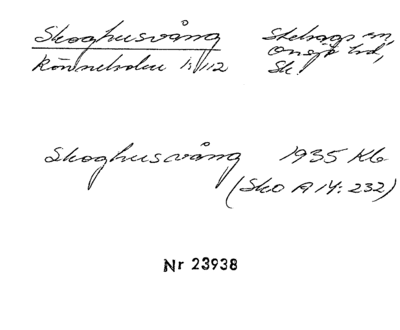 Skoghusvång
Stehags sn,
Onsjö hd,
Rönneholm 1:112
Sk.
Skoghusvång 1935 Kb
(Sko A 14: 232)
Nr 23938